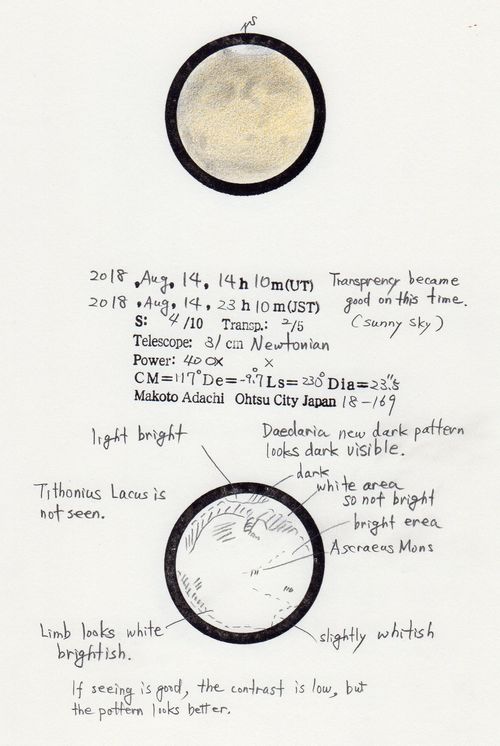 PS
2018 , Aug, 14, 14h 10m(UT) Transprency became
2018 , Aug, 14, 23h 10m(JST) good on this time.
S: 4/10 Transp.: 2/5 (sunny sky)
Telescope: 31 cm Newtonian
Power: 400X ×
CM=117° De=-9.°7 Ls=230° Dia=23."5
Makoto Adachi Ohtsu City Japan 18-169
light bright
Daedaria new dark pattern
looks dark visible.
dark
white area
so not bright
Tithonius Lacus is
not seen.
bright erea
Ascraeus Mons
Limb looks white
brightish.
slightly whitish
If seeing is good, the contrast is low, but
the pattern looks better.